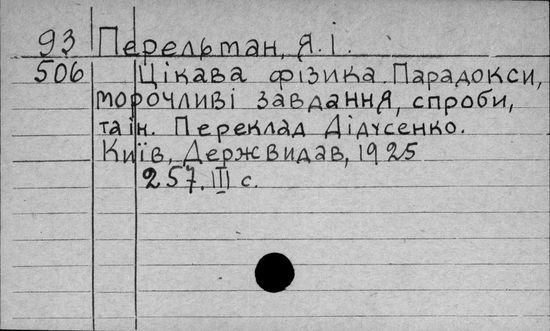 93 Перельман, Я.І.
506 Цікава фізика. Парадокси,
морочливі завдання, спроби,
та ін. Переклад Дідусенко.
Київ, Держвидав, 1925
257. III с.